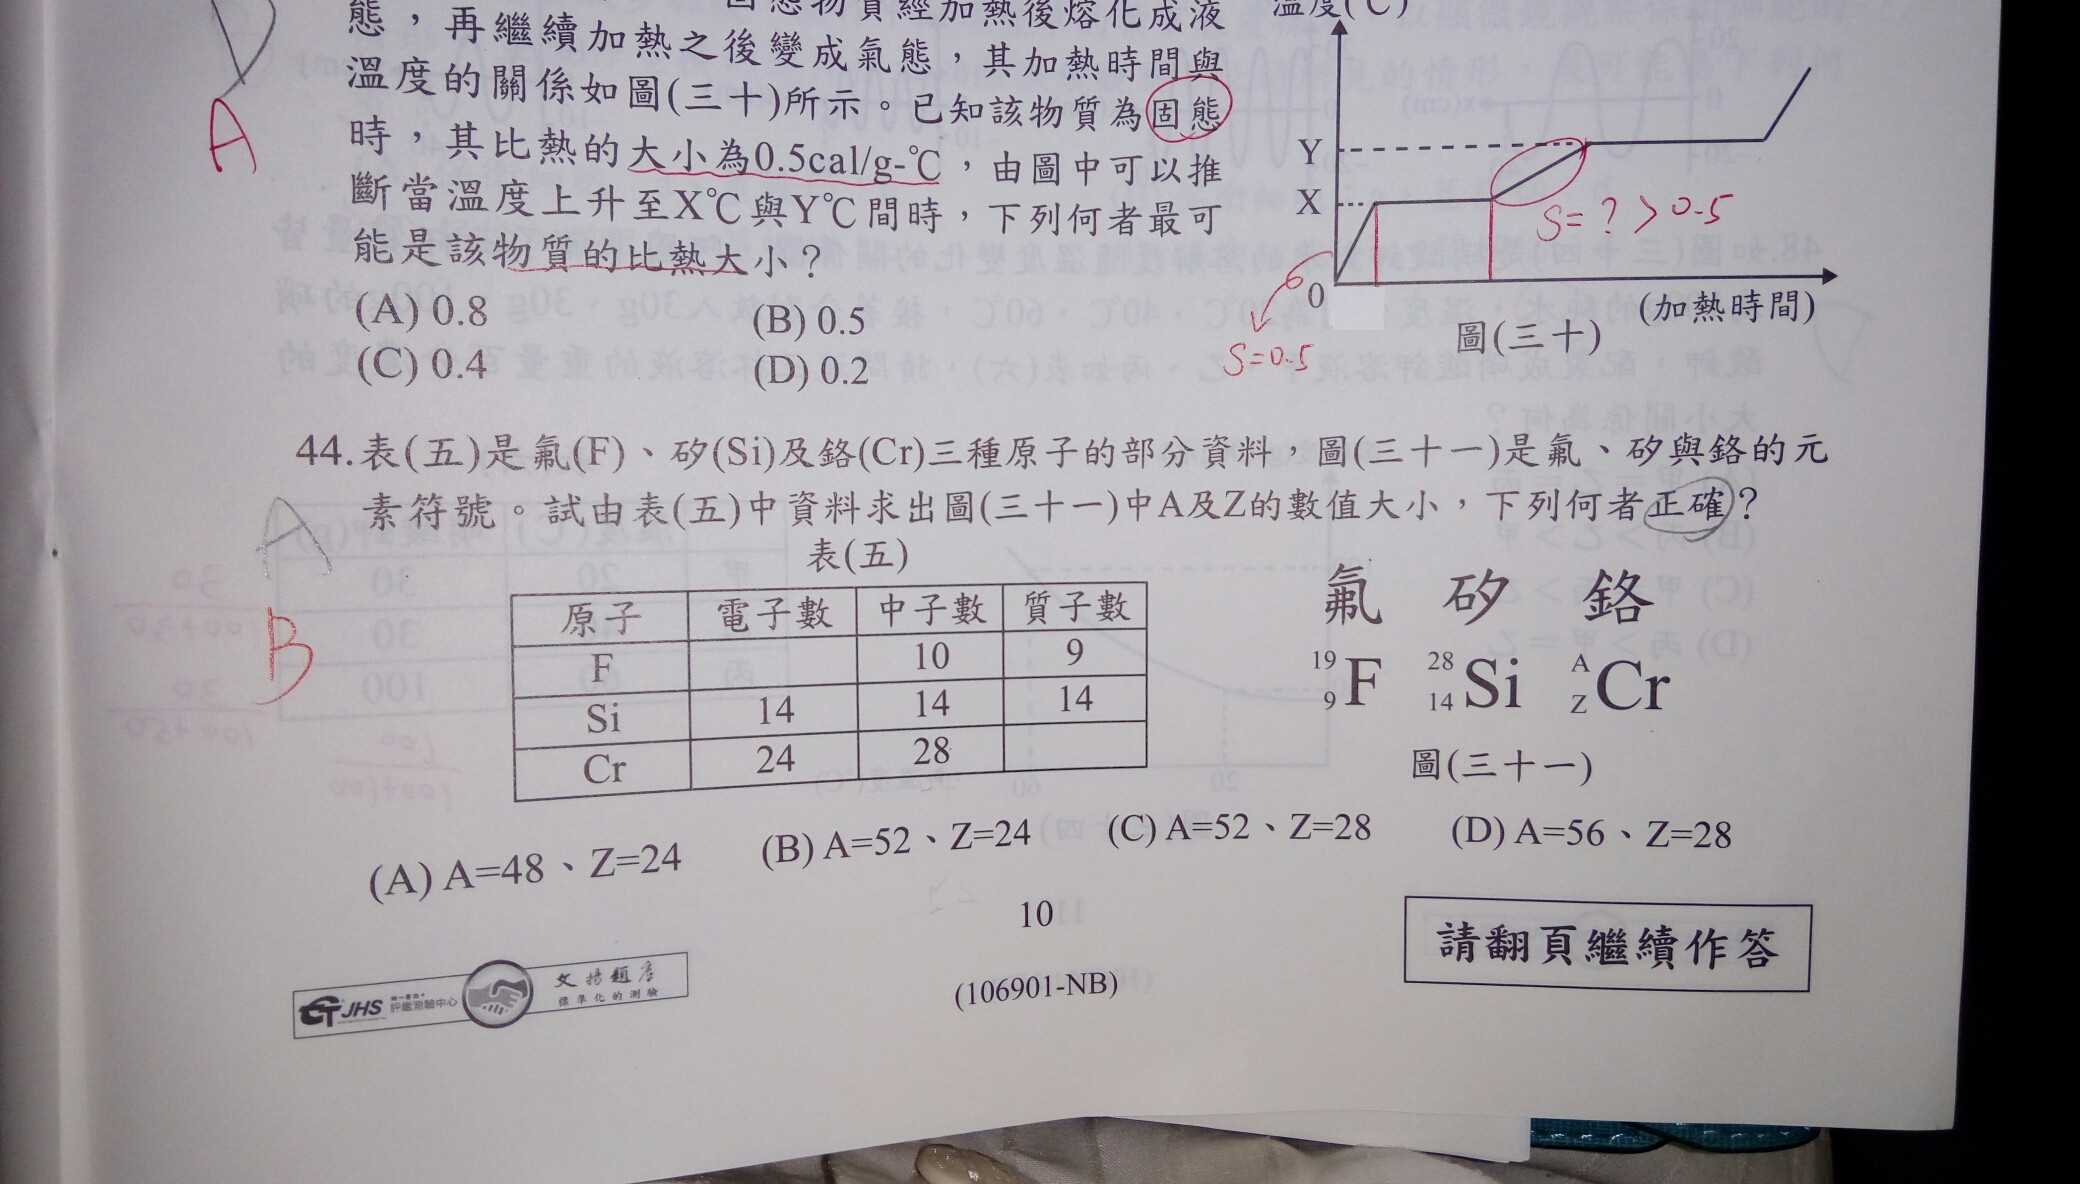 態,再繼續加熱之後變成氣態,其加熱時間與
溫度的關係如圖(三十)所示。已知該物質為固態
時,其比熱的大小為0.5cal/g-℃,由圖中可以推
斷當溫度上升至X℃與Y℃間時,下列何者最可
能是該物質的比熱大小?
(A) 0.8
(B) 0.5
(C) 0.4
(D) 0.2
D
A
溫度(℃)
Y
X
0
(加熱時間)
圖(三十)
S=?>0.5
S=0.5
44.表(五)是氟(F)、矽(Si)及鉻(Cr)三種原子的部分資料,圖(三十一)是氟、矽與鉻的元
素符號。試由表(五)中資料求出圖(三十一)中A及Z的數值大小,下列何者正確?
A
B
表(五)
原子 電子數 中子數 質子數
F 10 9
Si 14 14 14
Cr 24 28
氟 矽 鉻
19 9 F 28 14 Si A Z Cr
圖(三十一)
(A) A=48、Z=24
(B) A=52、Z=24
(C) A=52、Z=28
(D) A=56、Z=28
10
(106901-NB)
請翻頁繼續作答
JHS
評鑑測驗中心
文揚題庫
標準化的測驗